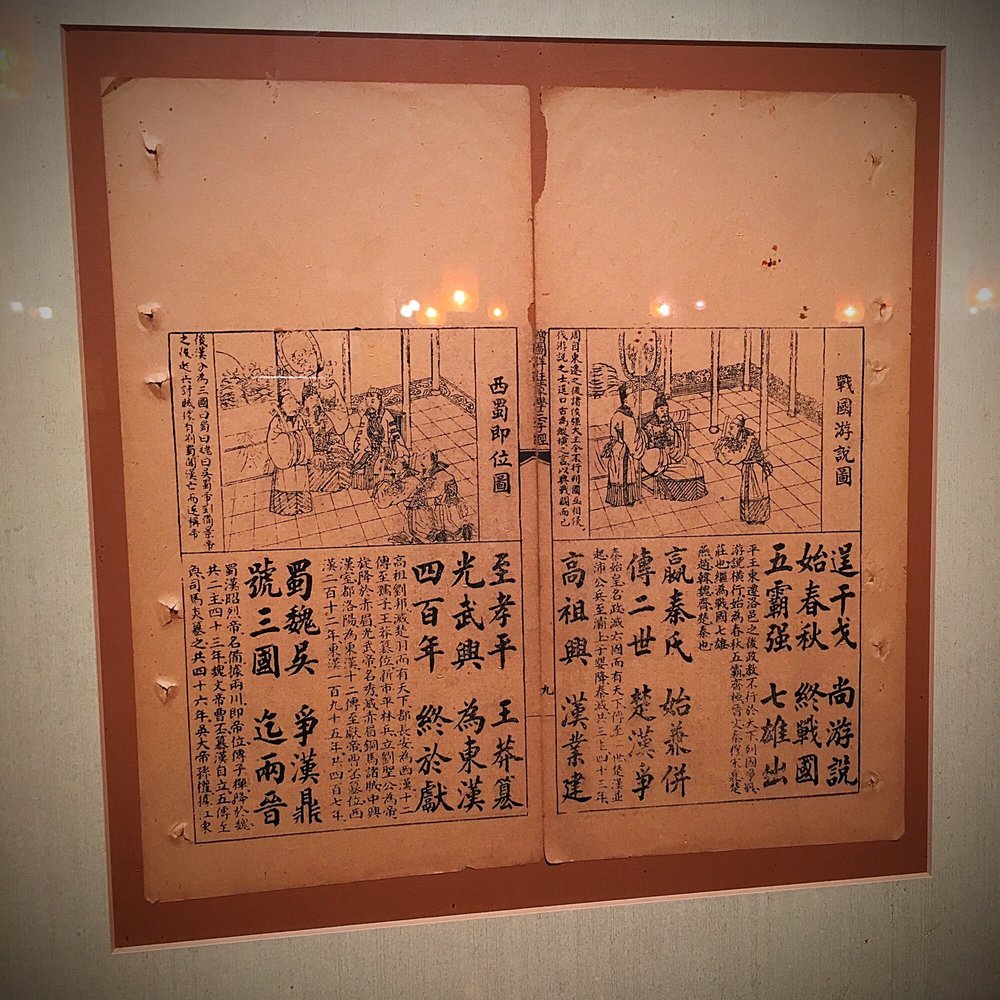 戰國游說圖
周自東遷之後諸侯强大令不行列國互相侵
伐游說之士逞口舌為縱橫之言以興戰鬪而已
逞干戈 尚游說
始春秋 終戰國
五霸强 七雄出
平王東遷洛邑之後政教不行於天下列國爭戰
游說橫行始為春秋五霸齊桓晉文秦穆宋襄楚
莊也繼為戰國七雄
燕趙韓魏齊楚秦也
嬴秦氏 始兼併
傳二世 楚漢爭
秦始皇名政滅六國而有天下傳至二世楚漢並
起沛公兵至霸上子嬰降秦滅共三主四十三年
高祖興 漢業建
三字經
九
西蜀即位圖
後漢分為三國曰蜀曰魏曰吳蜀帝劉備景帝
之後
至孝平 王莽篡
光武興 為東漢
四百年 終於獻
高祖劉邦滅楚羽而有天下都長安為西漢十二
傳至孺子王莽篡位新市平林兵立劉聖公為帝
旋降於赤眉光武帝名秀滅赤眉銅馬諸賊中興
漢室都洛陽為東漢十二傳至獻帝曹丕篡位西
漢二百十二年東漢一百九十五年共四百七年
蜀魏吳 爭漢鼎
號三國 迄兩晉
蜀漢昭烈帝名備據兩川即帝位傳子禪降於魏
共二主四十三年魏文帝曹丕篡漢自立五傳至
奐司馬炎篡之共四十六年吳大帝孫權據江東